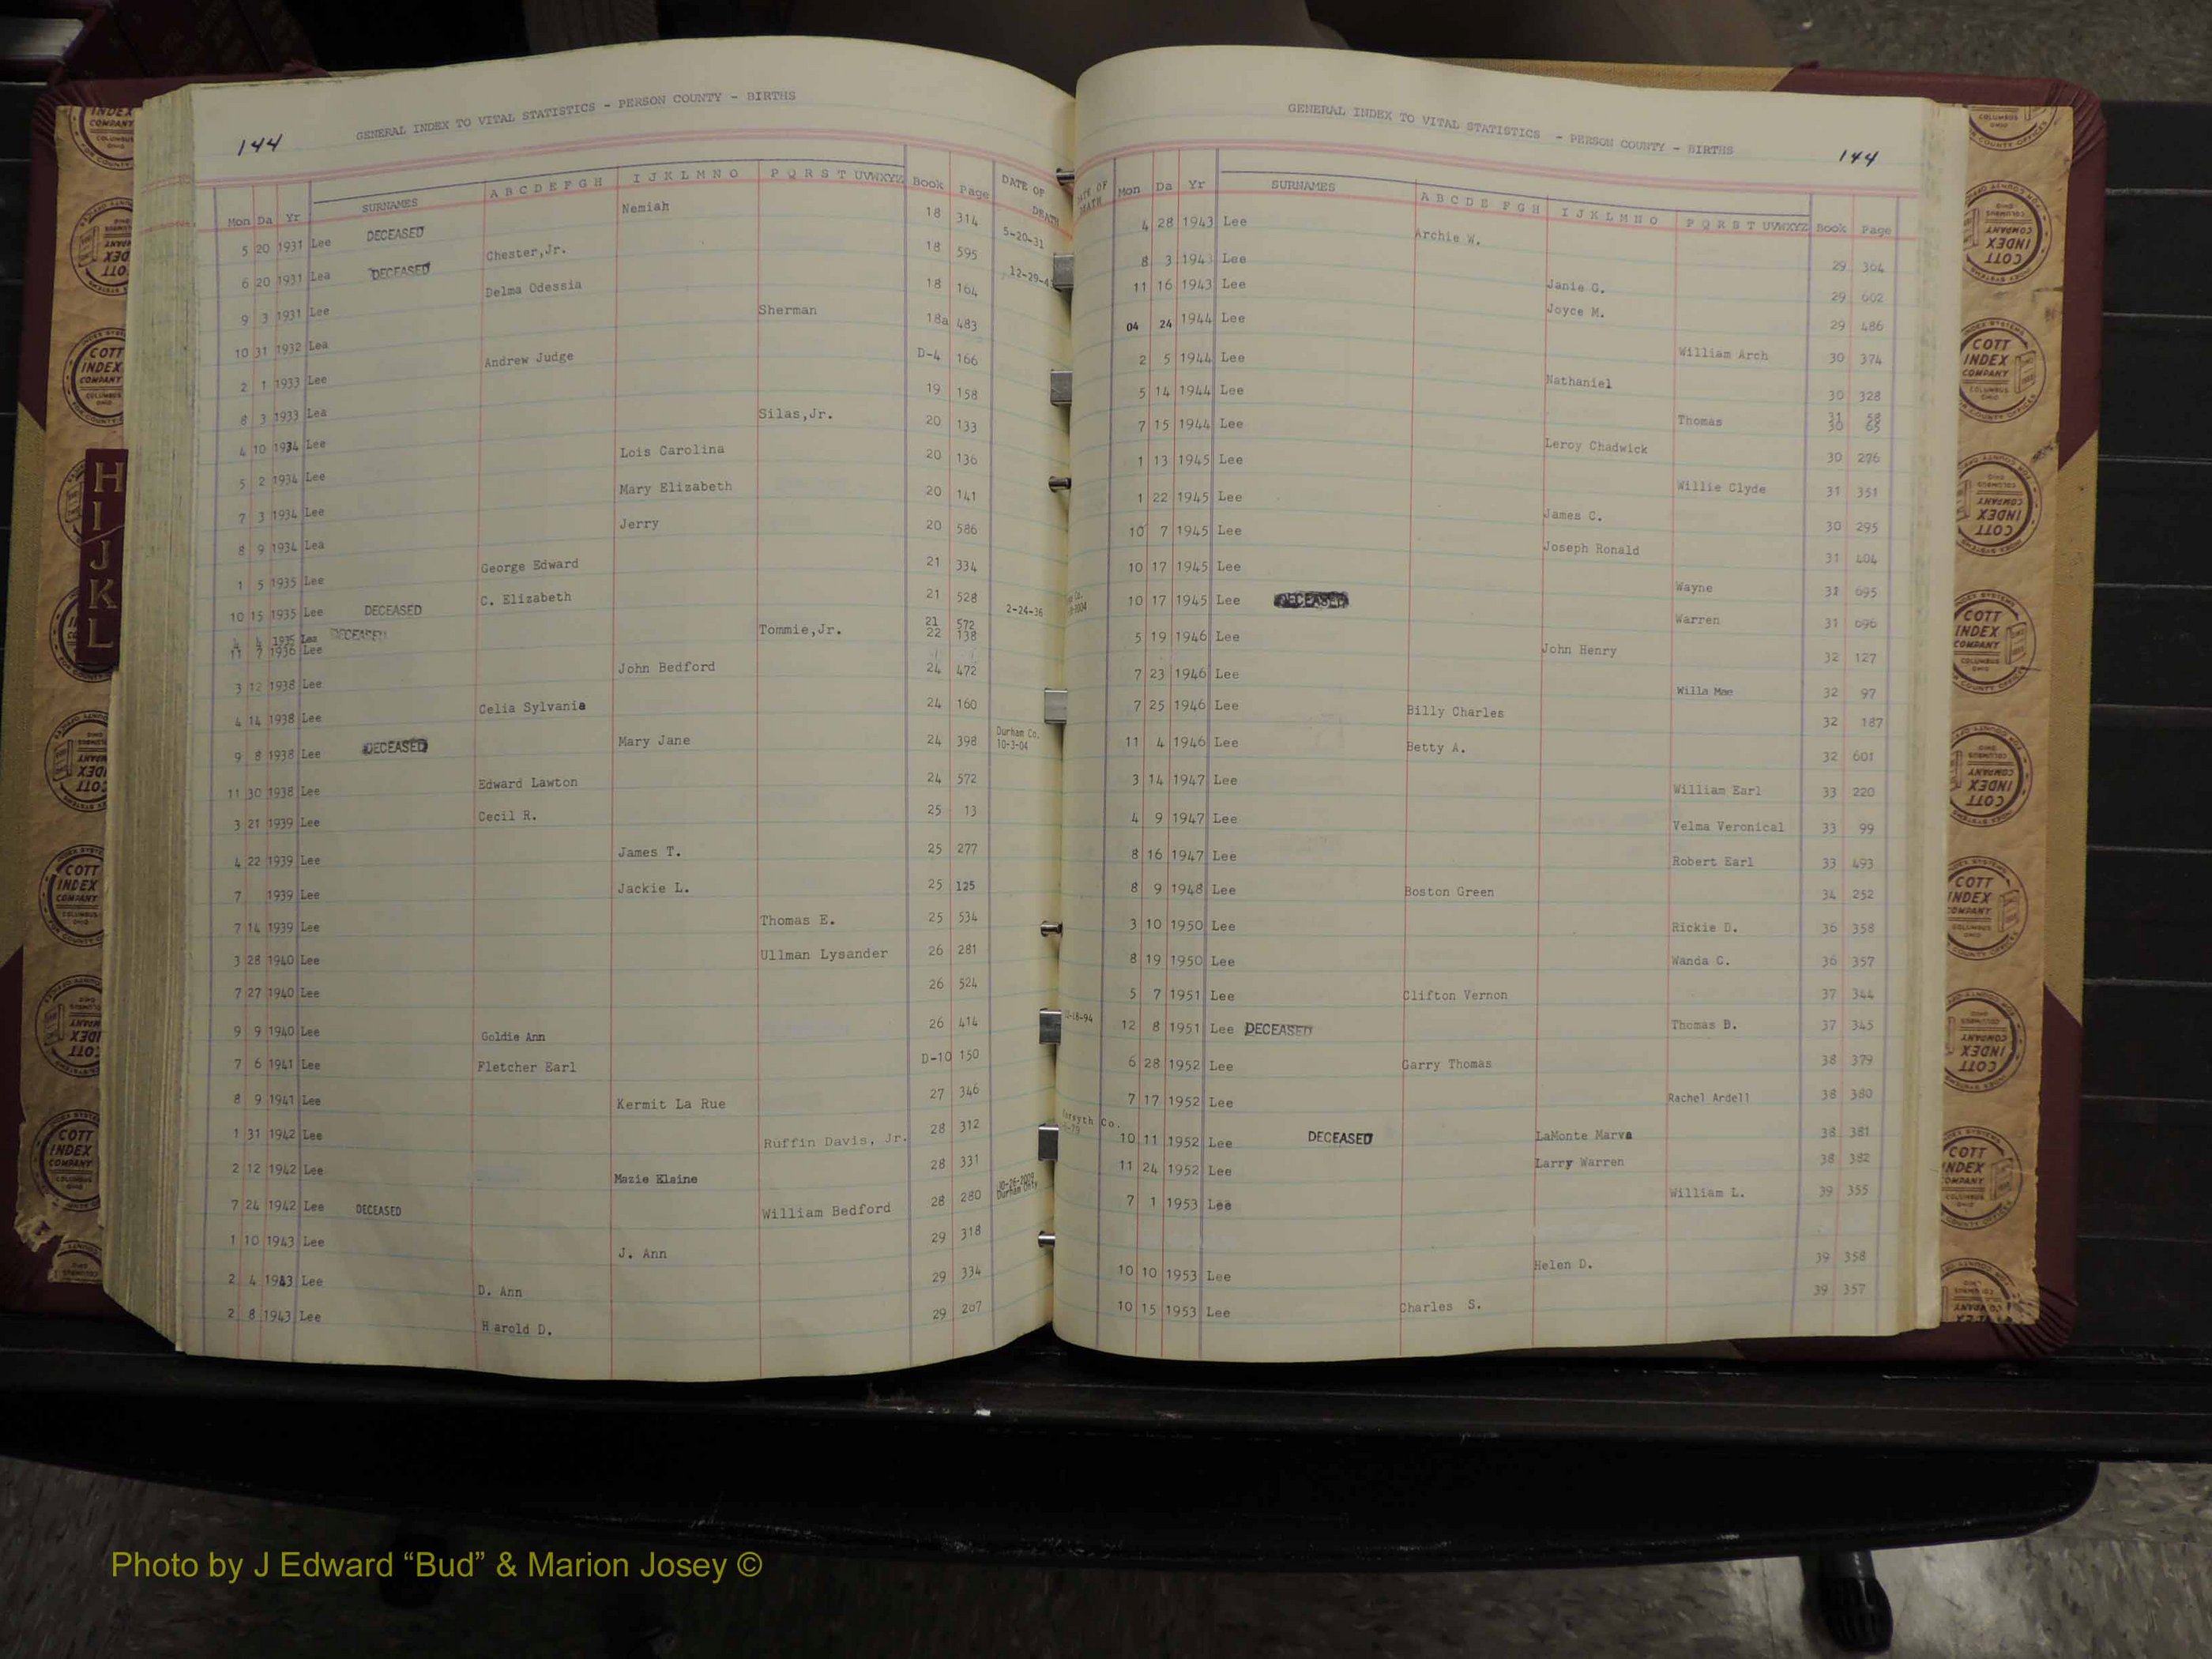 144
GENERAL INDEX TO VITAL STATISTICS - PERSON COUNTY - BIRTHS
Mon Da Yr SURNAMES A B C D E F G H I J K L M N O P Q R S T UVWXYZ Book Page DATE OF DEATH
5 20 1931 Lee DECEASED Nemiah 18 314 5-20-31
6 20 1931 Lea DECEASED Chester,Jr. 18 595
9 3 1931 Lee Delma Odessia 18 164
10 31 1932 Lea Sherman 18a 483
2 1 1933 Lee Andrew Judge D-4 166
8 3 1933 Lea 19 158
4 10 1934 Lee Silas,Jr. 20 133
5 2 1934 Lee Lois Carolina 20 136
7 3 1934 Lee Mary Elizabeth 20 141
8 9 1934 Lea Jerry 20 586
1 5 1935 Lee George Edward 21 334
10 15 1935 Lee DECEASED C. Elizabeth 21 528 2-24-36
4 4 1935 Lea DECEASED 21 572
11 7 1936 Lee Tommie,Jr. 22 138
3 12 1938 Lee John Bedford 24 472
4 14 1938 Lee Celia Sylvania 24 160
9 8 1938 Lee DECEASED Mary Jane 24 398 Durham Co. 10-3-04
11 30 1938 Lee Edward Lawton 24 572
3 21 1939 Lee Cecil R. 25 13
4 22 1939 Lee James T. 25 277
7 1939 Lee Jackie L. 25 125
7 14 1939 Lee Thomas E. 25 534
3 28 1940 Lee Ullman Lysander 26 281
7 27 1940 Lee 26 524
9 9 1940 Lee Goldie Ann 26 414
7 6 1941 Lee Fletcher Earl D-10 150
8 9 1941 Lee Kermit La Rue 27 346
1 31 1942 Lee Ruffin Davis, Jr. 28 312
2 12 1942 Lee Mazie Elaine 28 331
7 24 1942 Lee DECEASED William Bedford 28 280
1 10 1943 Lee J. Ann 29 318
2 4 1943 Lee D. Ann 29 334
2 8 1943 Lee Harold D. 29 207
GENERAL INDEX TO VITAL STATISTICS - PERSON COUNTY - BIRTHS
144
DATE OF DEATH Mon Da Yr SURNAMES A B C D E F G H I J K L M N O P Q R S T UVWXYZ Book Page
4 28 1943 Lee Archie W. 29 304
8 3 1943 Lee Janie G. 29 602
11 16 1943 Lee Joyce M. 29 486
04 24 1944 Lee William Arch 30 374
2 5 1944 Lee Nathaniel 30 328
5 14 1944 Lee Thomas 31 58
30 65
7 15 1944 Lee Leroy Chadwick 30 276
1 13 1945 Lee Willie Clyde 31 351
1 22 1945 Lee James C. 30 295
10 7 1945 Lee Joseph Ronald 31 404
10 17 1945 Lee Wayne 31 695
10 17 1945 Lee DECEASED Warren 31 696
5 19 1946 Lee John Henry 32 127
7 23 1946 Lee Willa Mae 32 97
7 25 1946 Lee Billy Charles 32 187
11 4 1946 Lee Betty A. 32 601
3 14 1947 Lee William Earl 33 220
4 9 1947 Lee Velma Veronical 33 99
8 16 1947 Lee Robert Earl 33 493
8 9 1948 Lee Boston Green 34 252
3 10 1950 Lee Rickie D. 36 358
8 19 1950 Lee Wanda C. 36 357
5 7 1951 Lee Clifton Vernon 37 344
12 8 1951 Lee DECEASED Thomas B. 37 345
6 28 1952 Lee Garry Thomas 38 379
7 17 1952 Lee Rachel Ardell 38 380
10 11 1952 Lee DECEASED LaMonte Marva 38 381
11 24 1952 Lee Larry Warren 38 382
7 1 1953 Lee William L. 39 355
10 10 1953 Lee Helen D. 39 358
10 15 1953 Lee Charles S. 39 357
H
I
J
K
L
COTT INDEX COMPANY COLUMBUS OHIO
Photo by J Edward “Bud” & Marion Josey ©